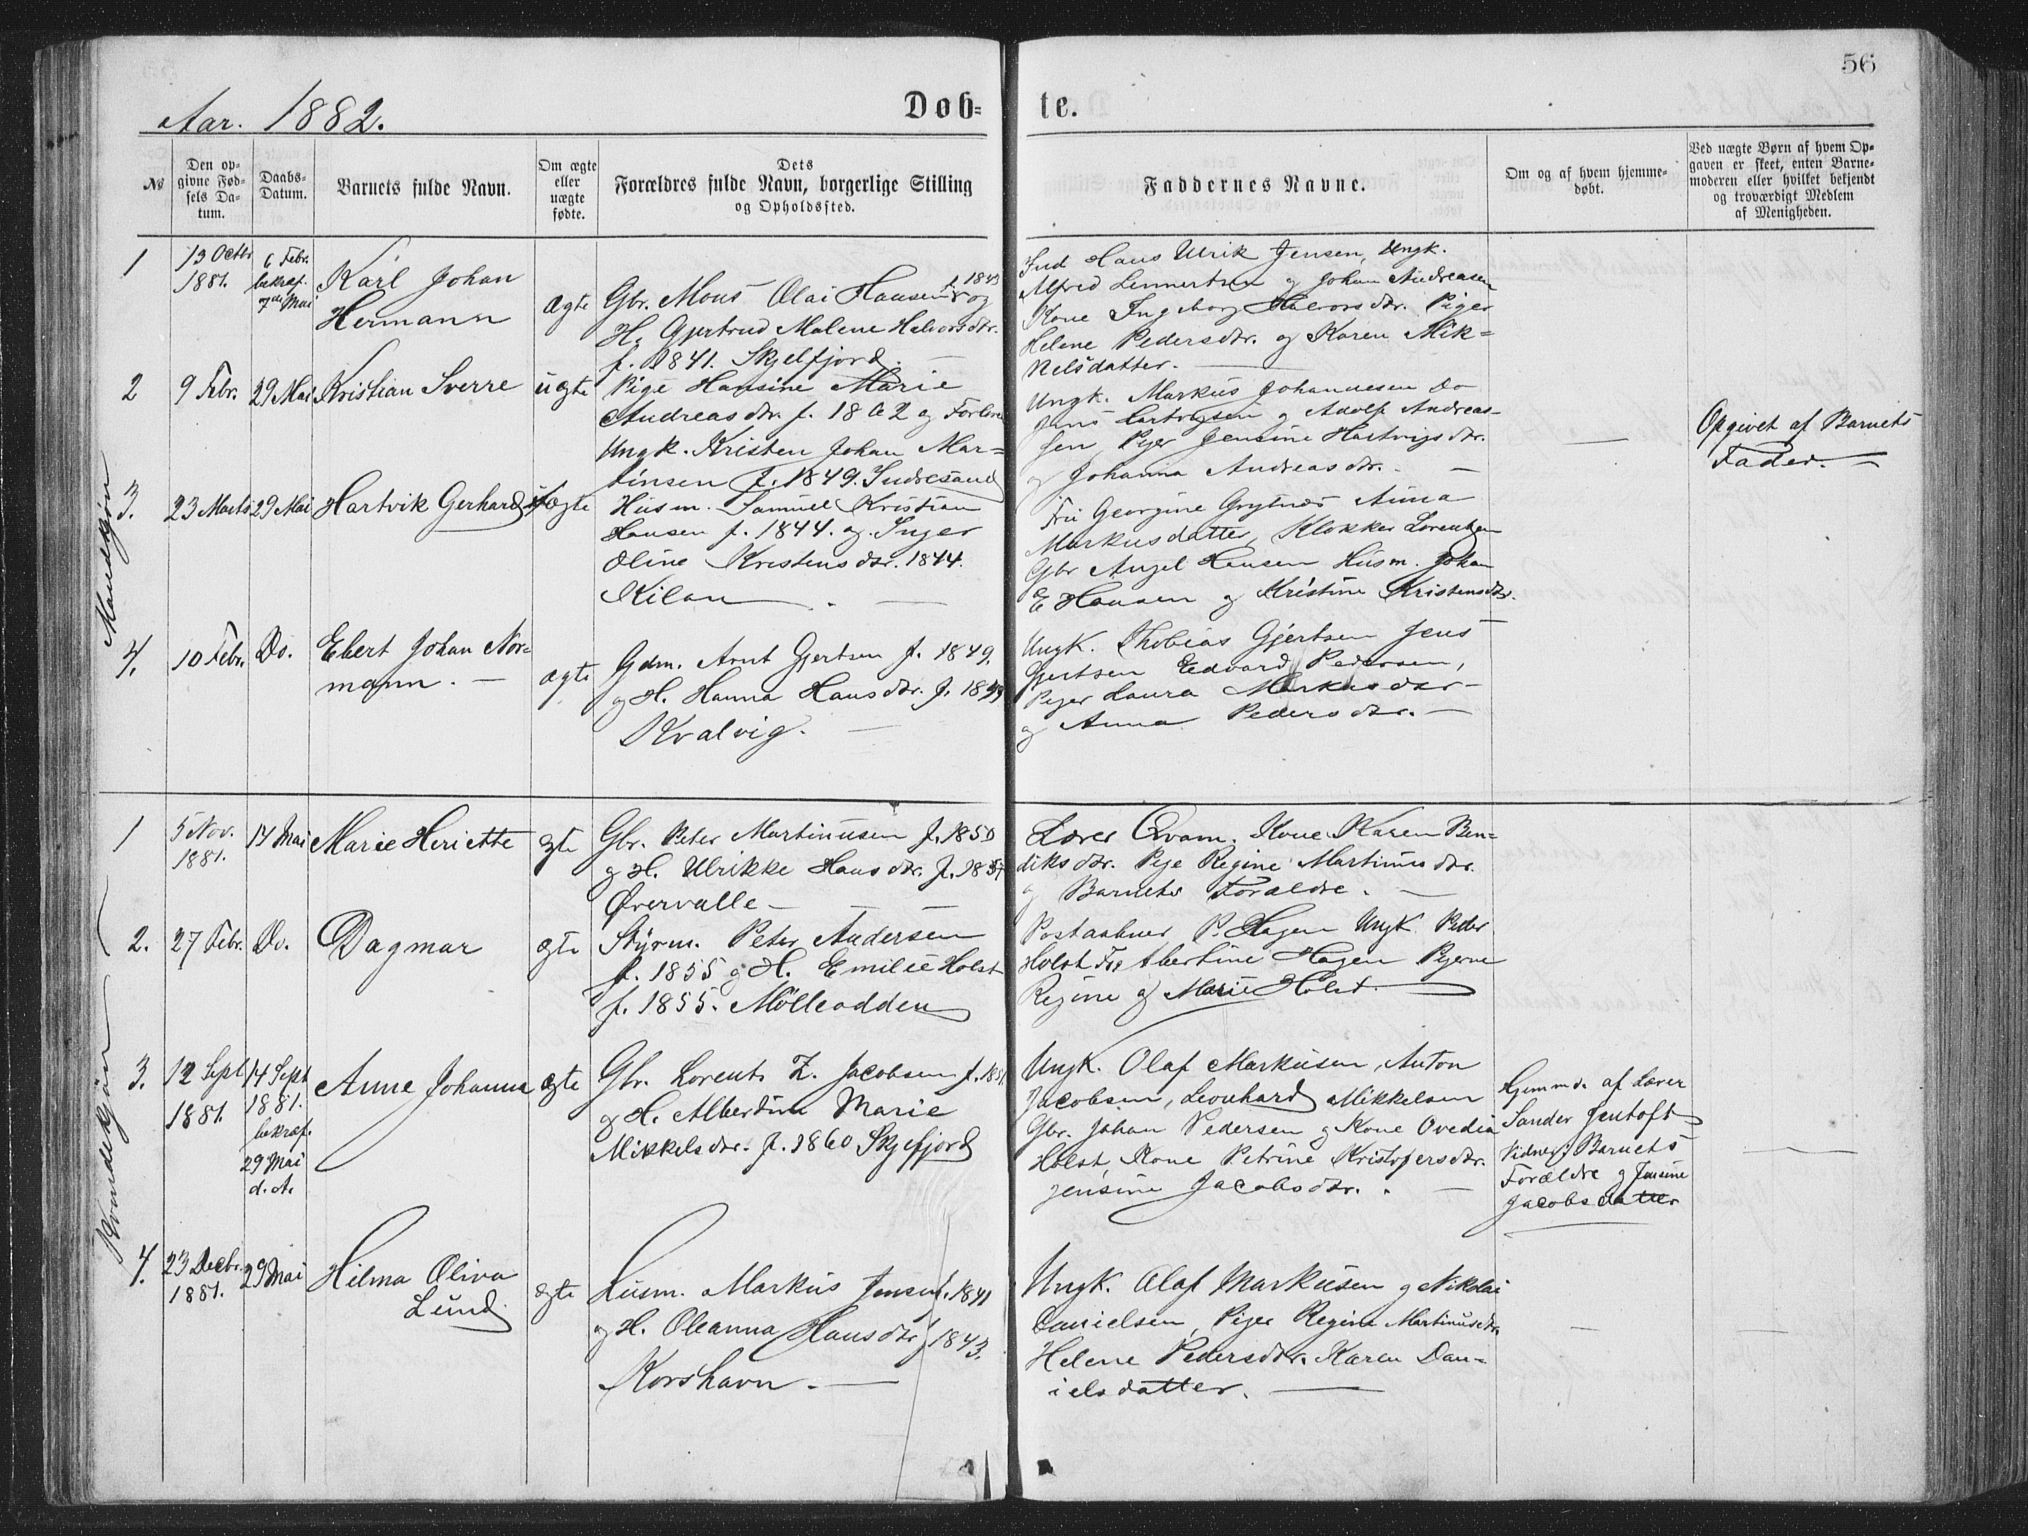 56
Aar. 1882.
Døb-
te.
№
Den op-
givne Fød-
sels Da-
tum.
Daabs-
Datum.
Barnets fulde Navn.
Om ægte
eller
uægte
fødte.
Dets
Forældres fulde Navn, borgerlige Stilling
og Opholdssted.
Faddernes Navne.
Om og af hvem hjemme-
døbt.
Ved uægte Børn af hvem Op-
gaven er skeet, enten Barne-
moderen eller hvilket bekjendt
og troværdigt Medlem
af Menigheden.
Mandkjøn
1
13 Octbr
1881.
6 Febr.
bekræf.
7de Mai
Karl Johan
Hermann
ægte
Gbr. Mons Olai Hansen f. 1843 og
H. Gjertrud Malene Halvorsdtr.
f. 1841. Skjelfjord. —
Hans Ulrik Jensen, Ungk.
Alfred Lennertsen og Johan Andreasen
Kone Ingeborg Halvorsdtr. Piger
Helene Pedersdtr. og Karen Mik-
kelsdatter. —
2
9 Febr.
29 Mai
Kristian Sverre
uægte
Pige Hansine Marie
Andreasdtr. f. 1862 og
Ungk. Kristen Johan Mar-
tinsen f. 1849. Indresand
Ungk. Markus Johannesen Do
Jens Hartvigsen og Adolf Andreas-
sen, Piger Jensine Hartvigsdtr.
og Johanna Andreasdtr. —
—
Opgivet af Barnets
Fader. —
3.
23 Marts
29 Mai
Hartvik Gerhard
ægte
Husm. Samuel Kristian
Hansen f. 1844. og Inger
Oline Kristensdtr. 1844.
Kilan — . —
Fru Georgine Grytnes Anna
Markusdatter, Klokker Lorentzen
Gbr Angel Hansen Husm. Johan
E Hansen og Kristine Kristensdtr.
4.
10 Febr.
Do.
Ebert Johan Nor-
mann. —
ægte
Gdm. Arnt Gjertsen f. 1849.
og H. Hanna Hansdtr. f. 1849
Kvalvig. —
Ungk. Thobias Gjertsen Jens
Gjertsen Edvard Pedersen,
Piger Laura Markusdtr
og Anna Pedersdtr. —
Kvindekjøn
1
5 Nov.
1881.
17 Mai
Marie Heriette
ægte
Gbr. Peter Martinusen f. 1850
og H. Ulrikke Hansdtr. f. 1857
Øvervalle — — —
Lærer Qvam. Kone Karen Ben-
diksdtr. Pige Regine Martinusdtr.
og Barnets Forældre. —
2.
27 Febr.
Do.
Dagmar
ægte
Styrm. Peter Andersen
f. 1855 og H. Emilie Holst
f. 1855. Mølleodden
Postaabner P. Hagen Ungk. Peder
Holst Fru Albertine Hagen Pigerne
Regine og Marie Holst. —
3.
12 Sept
1881.
14 Sept
1881.
bekræf.
29 Mai
d. A.
Anne Johanna
ægte
Gbr. Lorents Z. Jacobsen f. 1851
og H. Albertina Marie
Mikkelsdtr. f. 1860 Skjelfjord
Ungk. Olaf Markusen, Anton
Jacobsen, Leonhard Mikkelsen
Gbr. Johan Pedersen og Kone Ovedia
Holst, Kone Petrine Kristofersdtr.
Jensine Jacobsdtr. . —
Hjemmd. af Lærer
Sander Jentoft
Vidner, Barnets
Forældre og Jensine
Jacobsdatter
—
4.
23 Decbr.
1881.
29 Mai
Hilma Oliva
Lund.
ægte
Husm. Markus Jensen f. 1841
og H. Oleanna Hansdtr f 1843.
Korshavn. —
Ungk. Olaf Markusen og Nikolai
Danielsen, Piger Regine Martinusdtr.
Helene Pedersdtr. Karen Dan-
ielsdatter. —
—
—